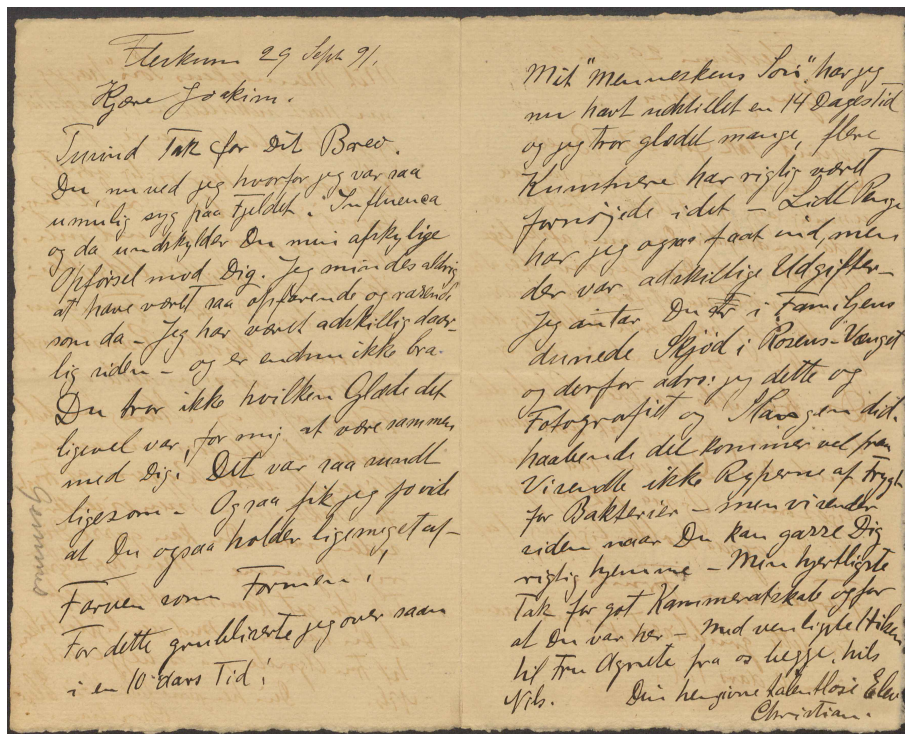 Fleskum 29 Sept 91.
Kjære Joakim.
Tusind Tak for Dit Brev.
Du nu ved jeg hvorfor jeg var saa
umulig syg paa Fjeldet. Influenca
og da undskylder Du min afskylige
Opførsel mod Dig. Jeg mindes aldrig
at have været saa opfarende og rasende
som da – Jeg har været adskillig daar-
lig siden – og er endnu ikke bra.
Du tror ikke hvilken Glæde det
ligevel var for mig at være sammen
med Dig! Det var saa sundt
ligesom – Ogsaa fik jeg jo vide
at Du ogsaa holder ligemeget af –
Farven som Formen!
For dette grubliserte jeg over saan
i en 10 aars Tid!
Gunnar
Mit "Menneskens Søn" har jeg
nu havt udstillet en 14 Dagestid
og jeg tror glædet mange, flere
Kunstnere har rigtig været
fornøjede i det – Lidt Penge
har jeg ogsaa faat ind, men
der var adskillige Udgifter –
Jeg antar Du er i Familjens
dunede Skjød i Rosens-Vænget
og derfor adrs: jeg dette og
Fotografiet og Slangen did.
haabende det kommer vel frem
Vi sendte ikke Ryperne af Frygt
for Bakterier – men vi sender
siden naar Du kan gasse Dig
rigtig hjemme – Min hjertligste
Tak for got Kammeratskab og for
at Du var her – Med venligste Hilsen
til Fru Agnete fra os begge, hils
Nils. Din hengivne talentløse Elev
Christian.